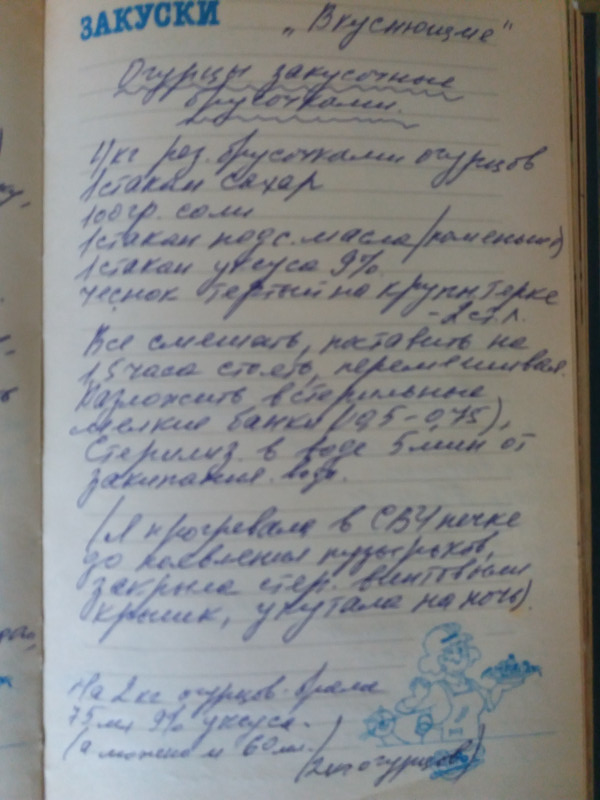 ЗАКУСКИ
„Вкуснющие"
Огурцы закусочные
брусочками.
4 кг рез. брусочками огурцов
1 стакан сахар
100 гр. соли
1 стакан подс. масла (поменьше)
1 стакан уксуса 9%
чеснок тертый на крупн терке
- 2 ст. л.
Все смешать, поставить на
1,5 часа стоять, перемешивая.
Разложить в стерильные
мелкие банки (0,5 - 0,75),
Стерилиз. в воде 5 мин от
закипания воды.
(Я прогревала в СВЧ печке
до появления пузырьков,
закрыла стер. винтовыми
крышк, укутала на ночь).
На 2 кг огурцов брала
75 мл 9% уксуса -
(а можно и 60 мл.)
(2 кг огурцов)